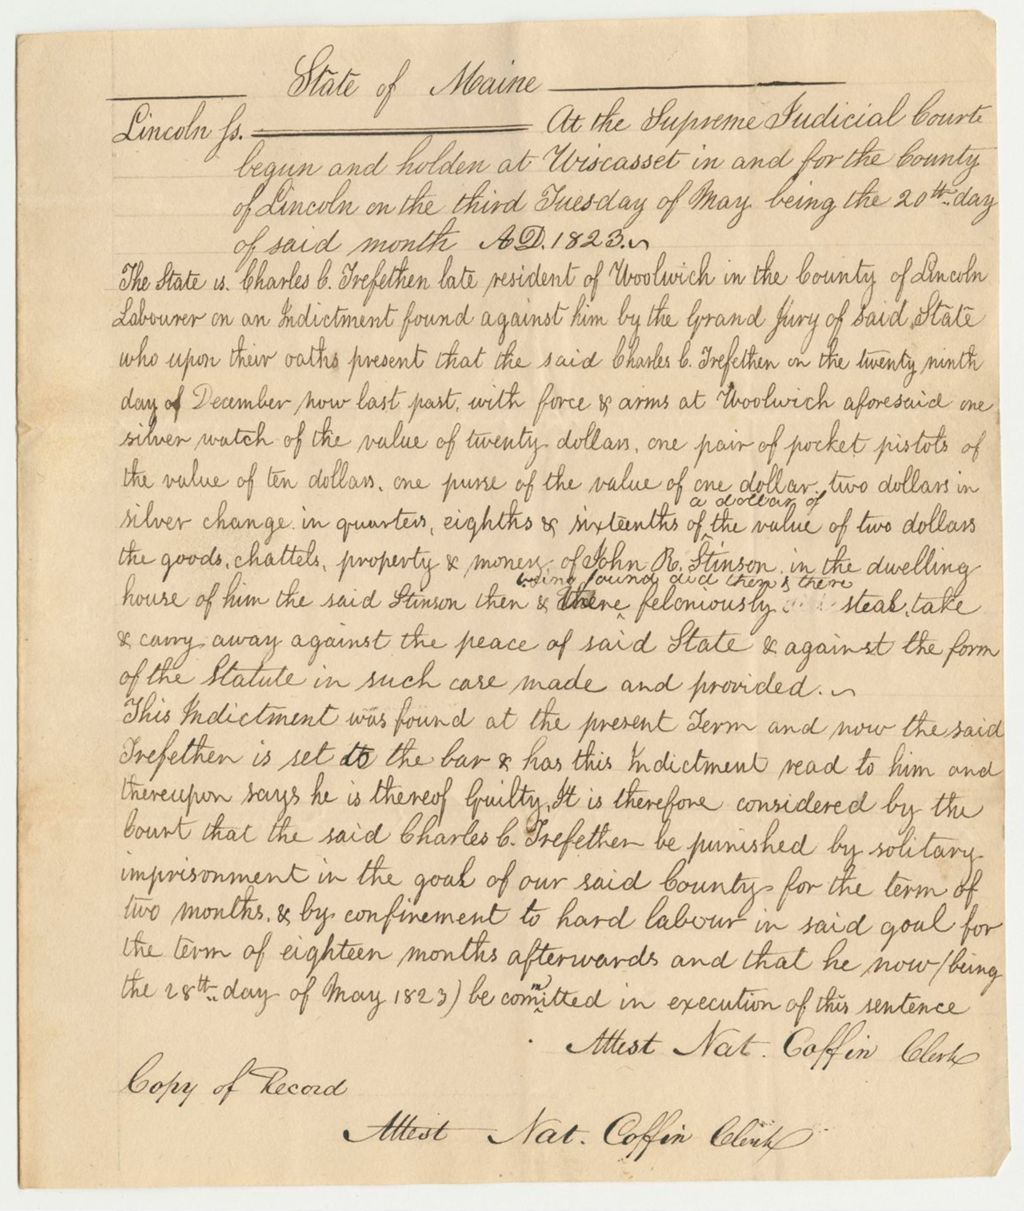 State of Maine
Lincoln ss. At the Supreme Judicial Court
begun and holden at Wiscasset in and for the County
of Lincoln on the third Tuesday of May being the 20th day
of said month A.D. 1823.
The State vs. Charles C. Trefethen late resident of Woolwich in the County of Lincoln
Labourer on an Indictment found against him by the Grand Jury of said State
who upon their oaths present that the said Charles C. Trefethen on the twenty ninth
day of December now last past, with force & arms at Woolwich aforesaid one
silver watch of the value of twenty dollars, one pair of pocket pistols of
the value of ten dollars, one purse of the value of one dollar, two dollars in
a dollar of
silver change in quarters, eighths & sixteenths of the value of two dollars
the goods, chattels, property & money of John R. Stinson in the dwelling
being found did then & there
house of him the said Stinson then & there feloniously steal, take
& carry away against the peace of said State & against the form
of the Statute in such case made and provided.
This Indictment was found at the present Term and now the said
Trefethen is set to the bar & has this Indictment read to him and
thereupon says he is thereof Guilty. It is therefore considered by the
Court that the said Charles C. Trefethen be punished by solitary
imprisonment in the goal of our said County for the term of
two months, & by confinement to hard labour in said goal for
the term of eighteen months afterwards and that he now (being
the 28th day of May 1823) be committed in execution of this sentence
Attest Nat. Coffin Clerk
Copy of Record
Attest Nat. Coffin Clerk